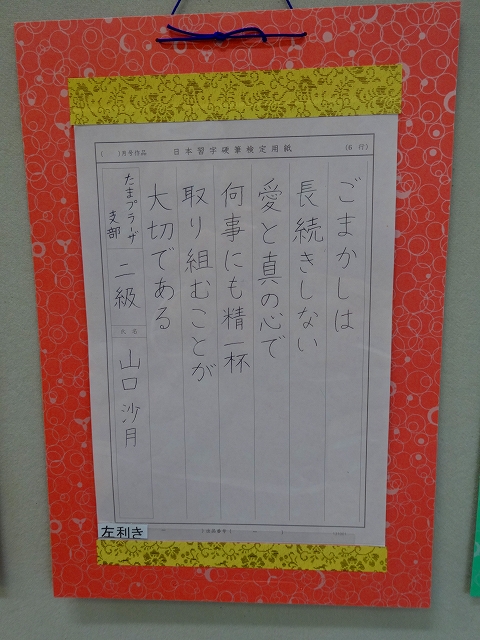 ( )月号作品 日本習字硬筆検定用紙 (6行)
ごまかしは
長続きしない
愛と真の心で
何事にも精一杯
取り組むことが
大切である
たまプラーザ
支部
二級
氏名
山口沙月
左利き